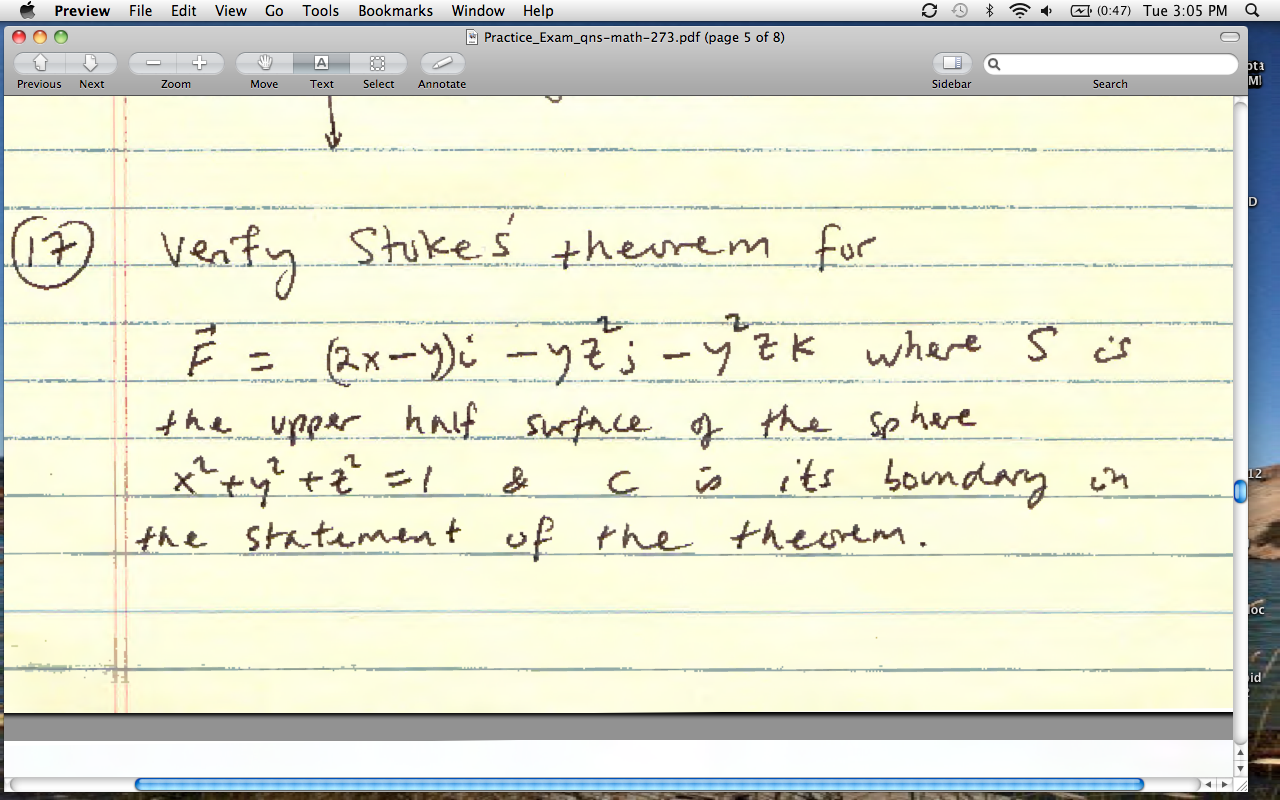 Preview File Edit View Go Tools Bookmarks Window Help (0:47) Tue 3:05 PM
Practice_Exam_qns-math-273.pdf (page 5 of 8)
Previous Next Zoom Move Text Select Annotate Sidebar Search
17 Verify Stoke's theorem for
F⃗ = (2x-y)i - yz²j - y²zk where S is
the upper half surface of the sphere
x²+y²+z²=1 & C is its boundary in
the statement of the theorem.